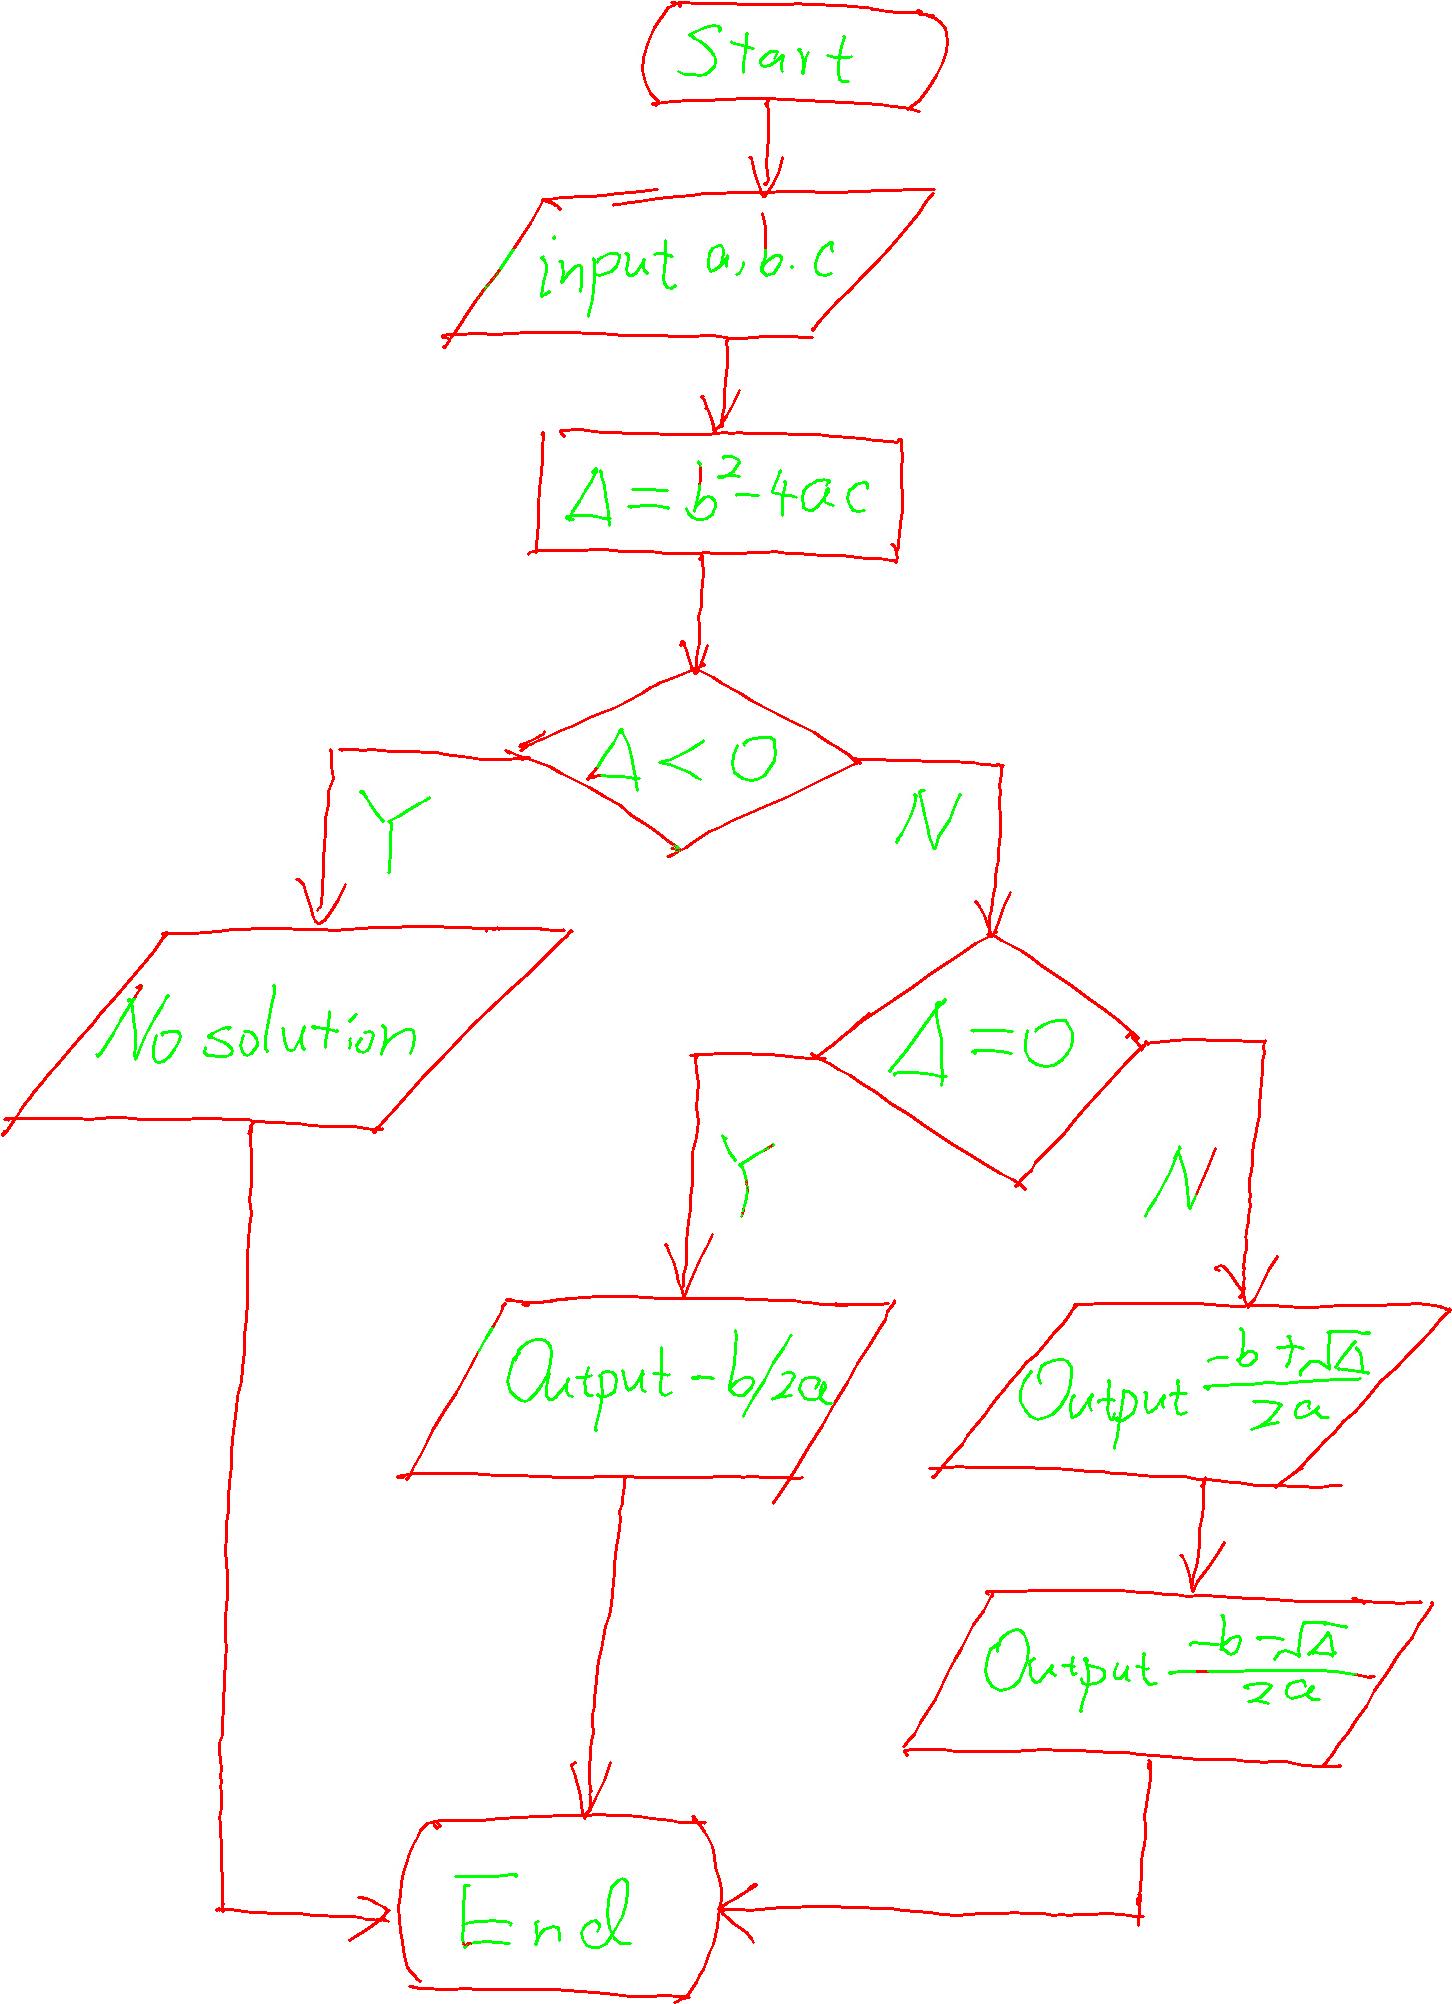 Start
input a, b. c
Δ=b²-4ac
Δ<0
Y
N
No solution
Δ=0
Y
N
Output -b/2a
Output (-b+√Δ)/2a
Output (-b-√Δ)/2a
End